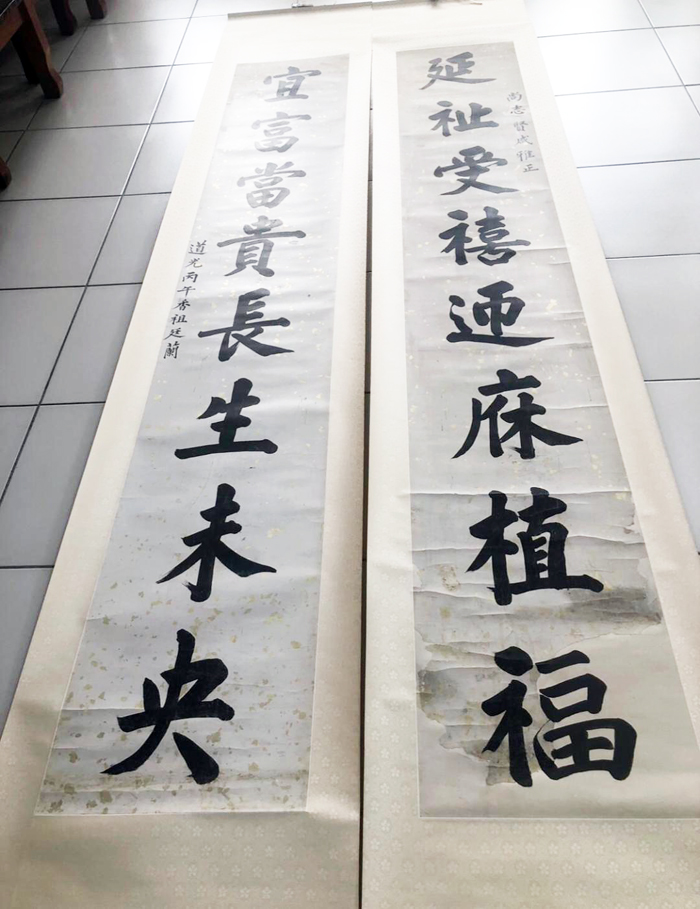 延祉受禧迎庥植福
尚志賢成雅正
宜富當貴長生未央
道光丙午香祖廷蘭